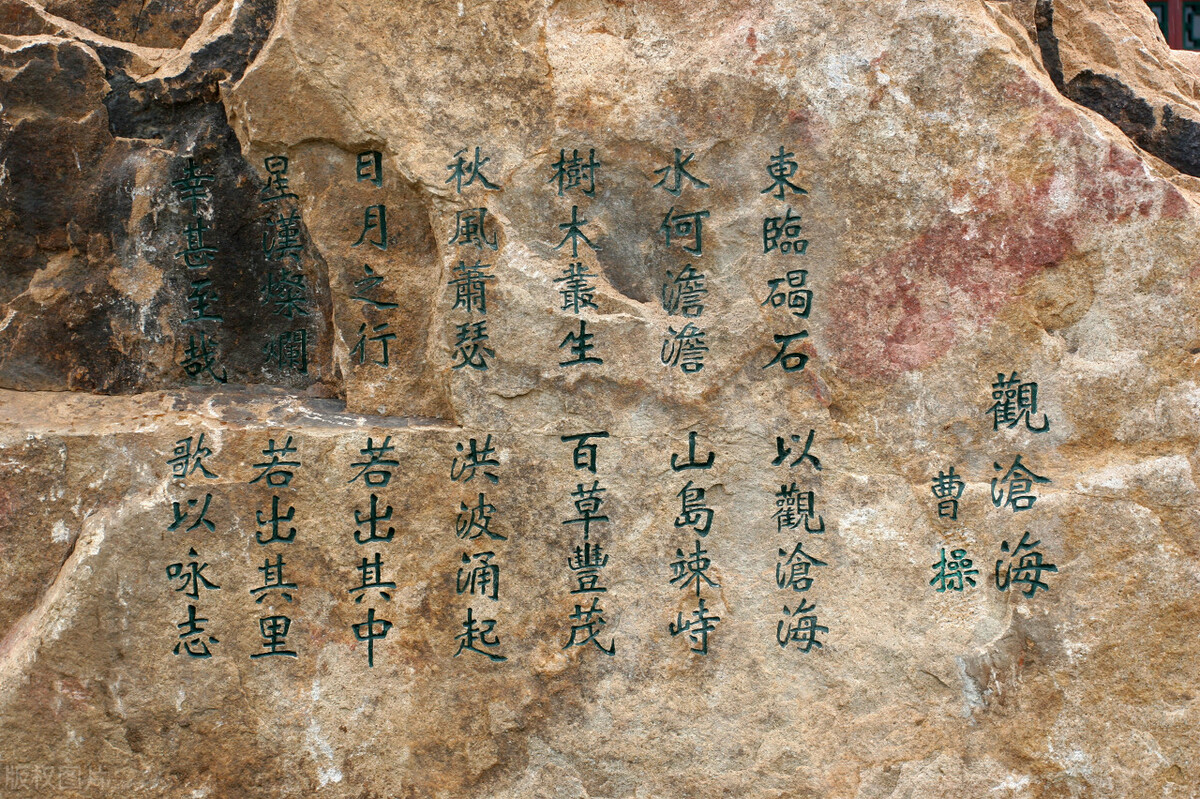 觀滄海
曹操
東臨碣石
以觀滄海
水何澹澹
山島竦峙
樹木叢生
百草豐茂
秋風蕭瑟
洪波涌起
日月之行
若出其中
星漢燦爛
若出其里
幸甚至哉
歌以咏志
版权图片